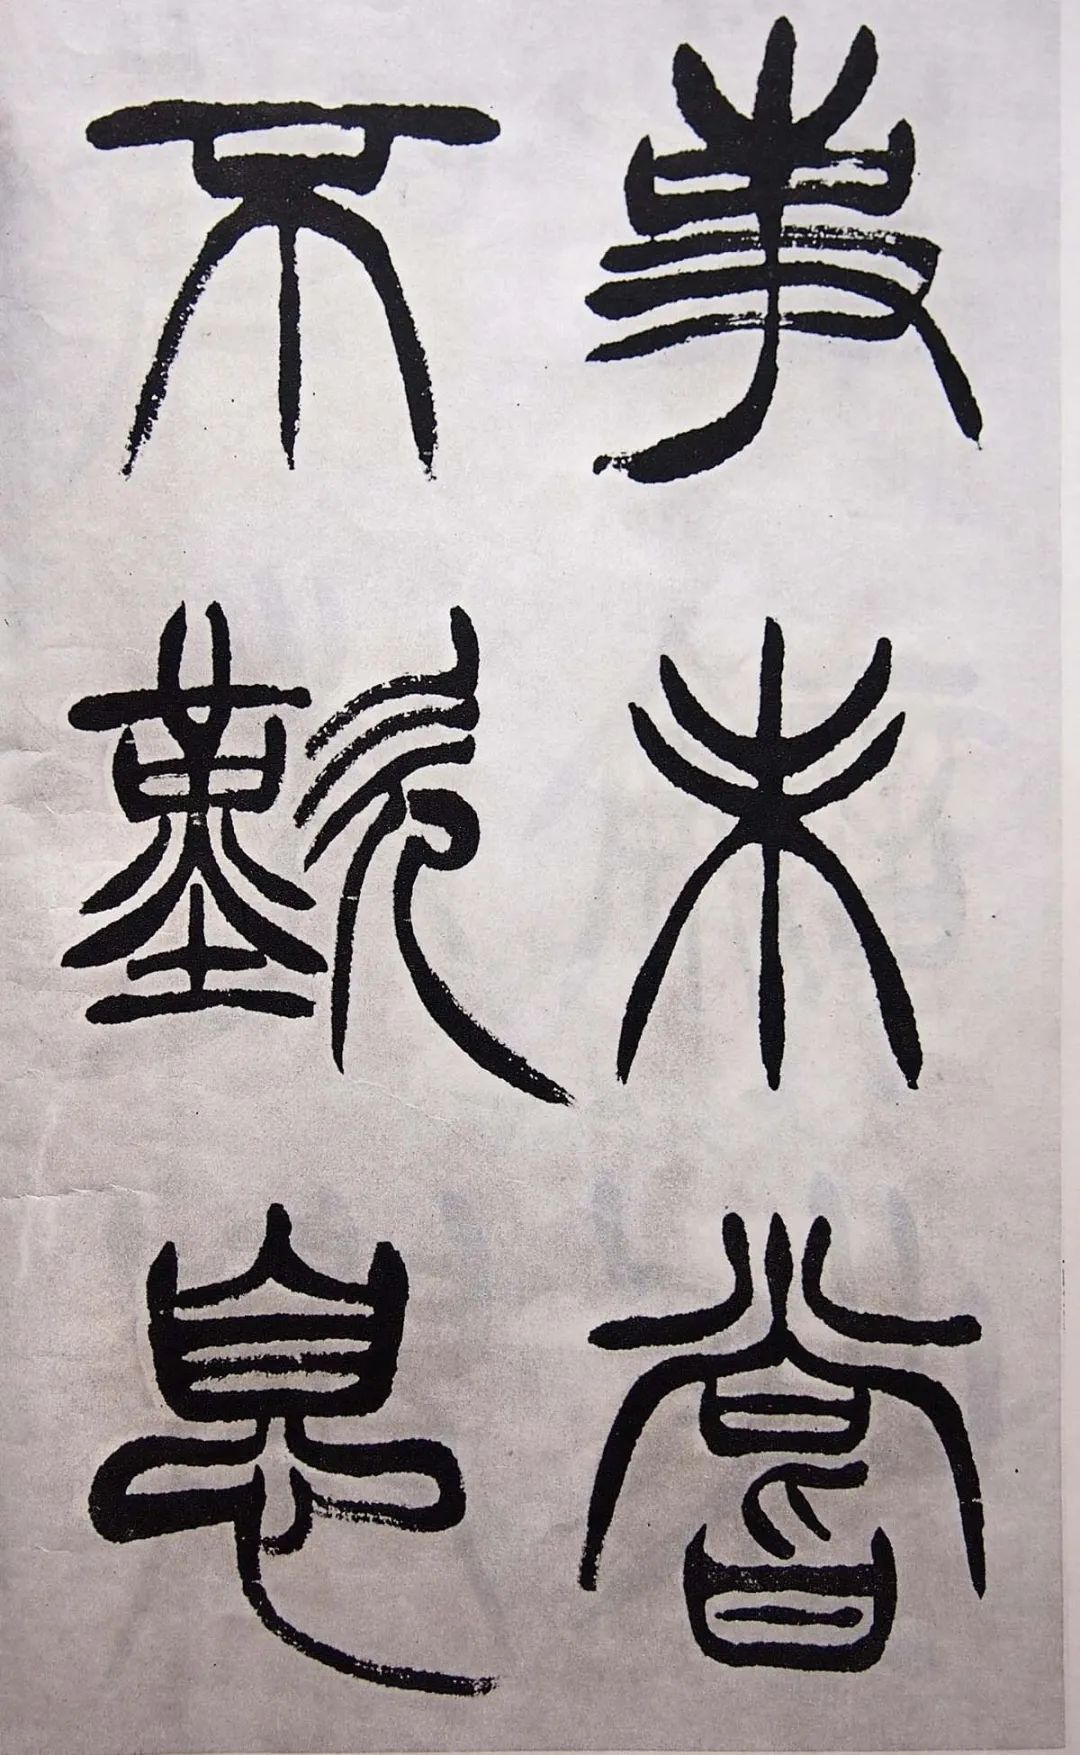 事未嘗
不歎息